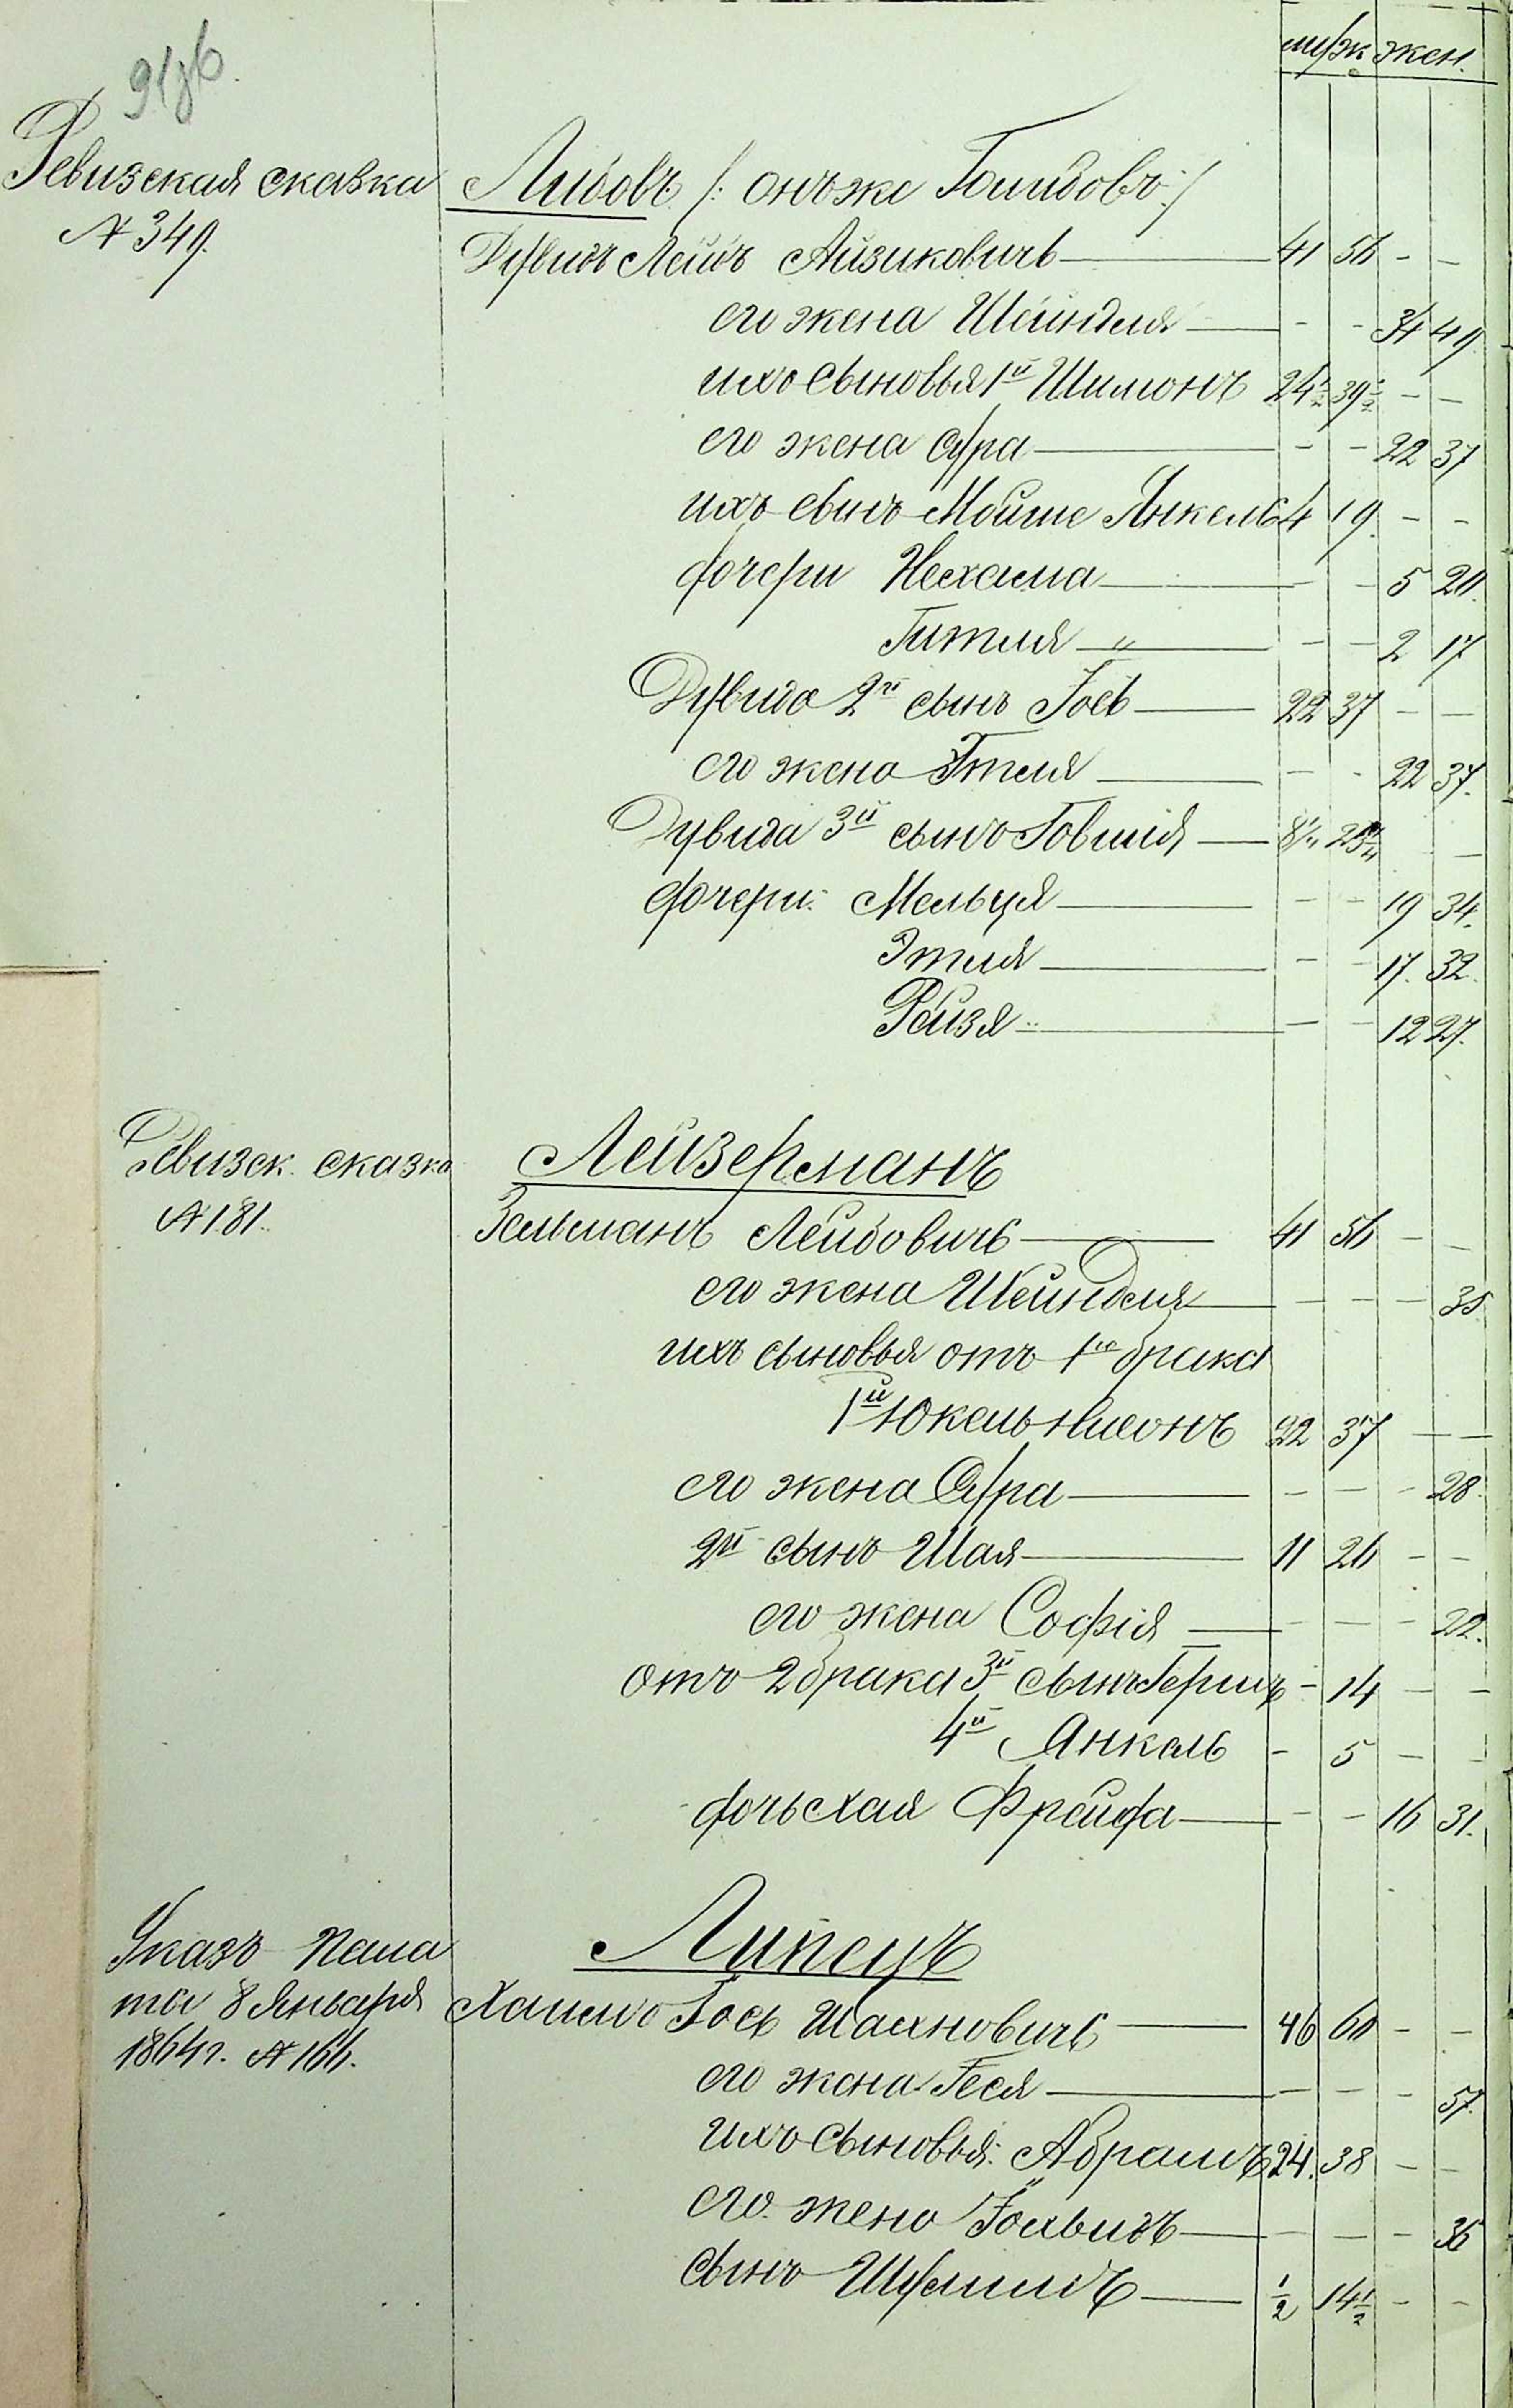 муж. жен.
Ревизская сказка
№ 349.
Лидовъ /: онъ же Гол /
Дувидъ Лейбъ Айзиковичъ — 41 56 - -
его жена Шейндля — - - 34 49.
ихъ сыновья 1й Шимонъ 24½ 39½ - -
его жена Сура — - - 22 37
ихъ сынъ Мойше Янкель 4 19. - -
дочери Нехама — - - 5 20.
Гитля " — - - 2 17
Дувида 2й сынъ Іось — 22 37 - -
его жена Этля — - - 22 37.
Дувида 3й сынъ Говшія — 8
дочери: Мельця — - - 19 34.
Этля — - - 17. 32.
Рейзя — - - 12 27.
Ревизск. сказка
№ 181.
Лейзерманъ
Зельманъ Лейбовичъ — 41 56 - -
его жена Шейндля — - - - 35
ихъ сыновья отъ 1го брака
1й Юкель Нисонъ 22 37 - -
его жена Сура — - - - 28.
2й сынъ Шая — 11 26 - -
его жена Софія — - - - 22.
отъ 2 брака 3й сынъ Гершъ - 14 - -
4й Янкель - 5 - -
дочь Хая Фрейда — - - 16 31.
Указъ Пала
ты 8 Января
1864 г. № 166.
Липецъ
Хаимъ Іось Шахновичъ — 46 60 - -
его жена Геся — - - - 57.
ихъ сыновья: Абрамъ 24. 38 - -
его жена — - - - 36
сынъ Шулимъ — ½ 14½ - -